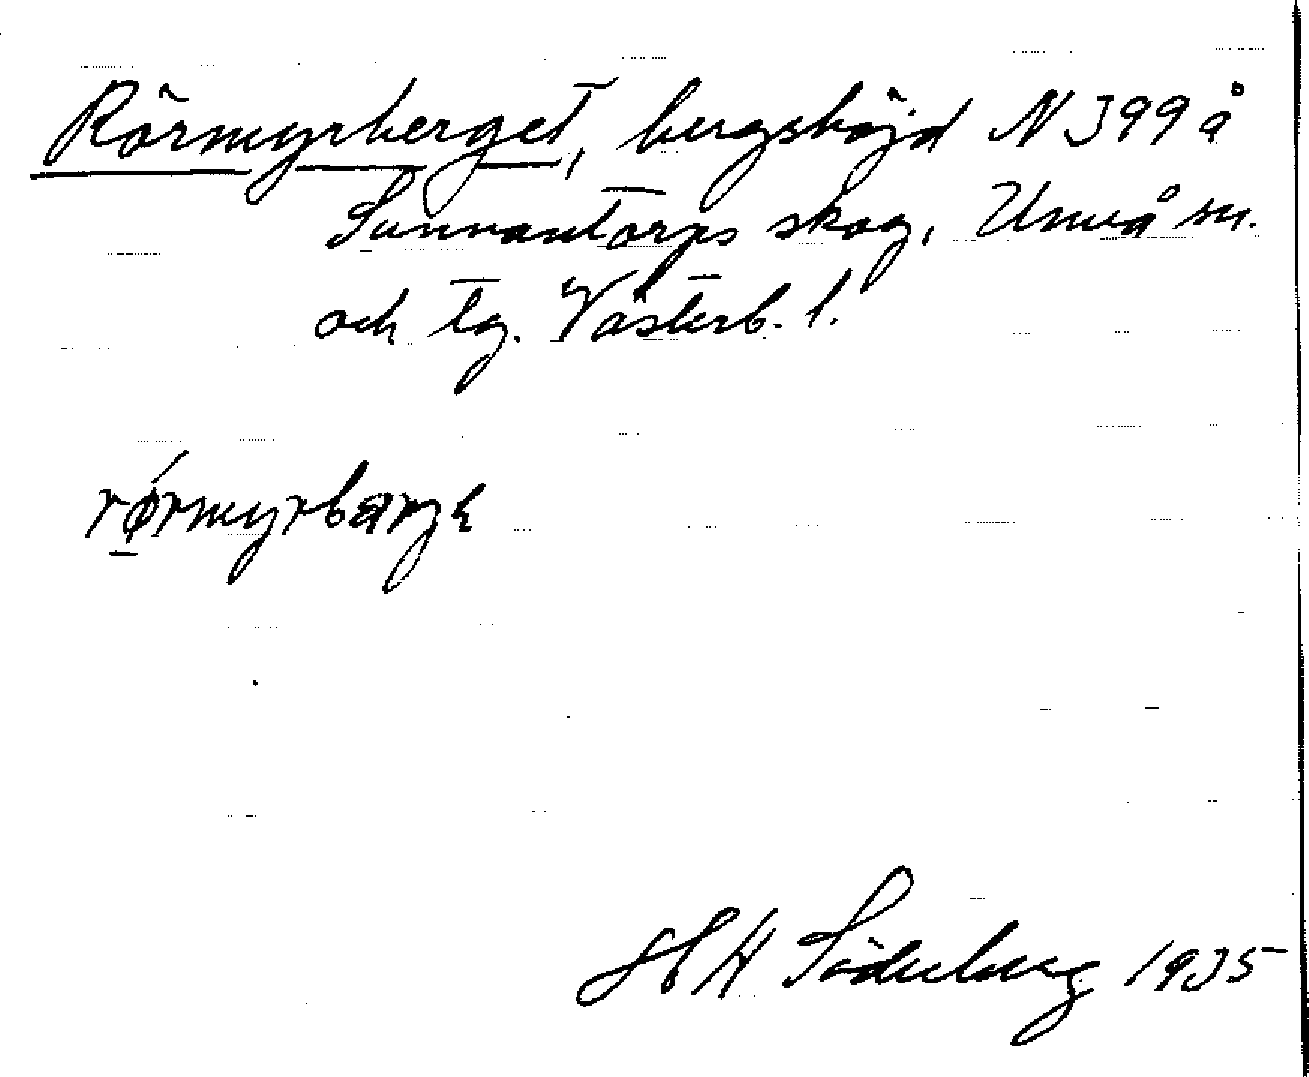 Rörmyrberget, bergshöjd N 399 å
Sunnantorps skog, Umeå sn.
och tg. Västerb. l.
rørmyrbærgε
H W Söderberg 1935